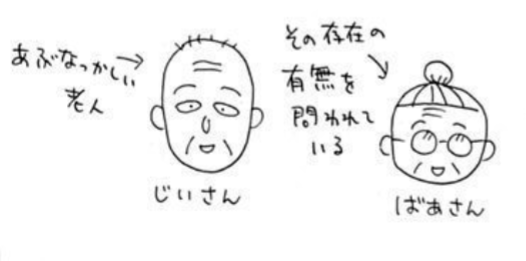 あぶなっかしい
老人
じいさん
その存在の
有無を
問われて
いる
ばあさん